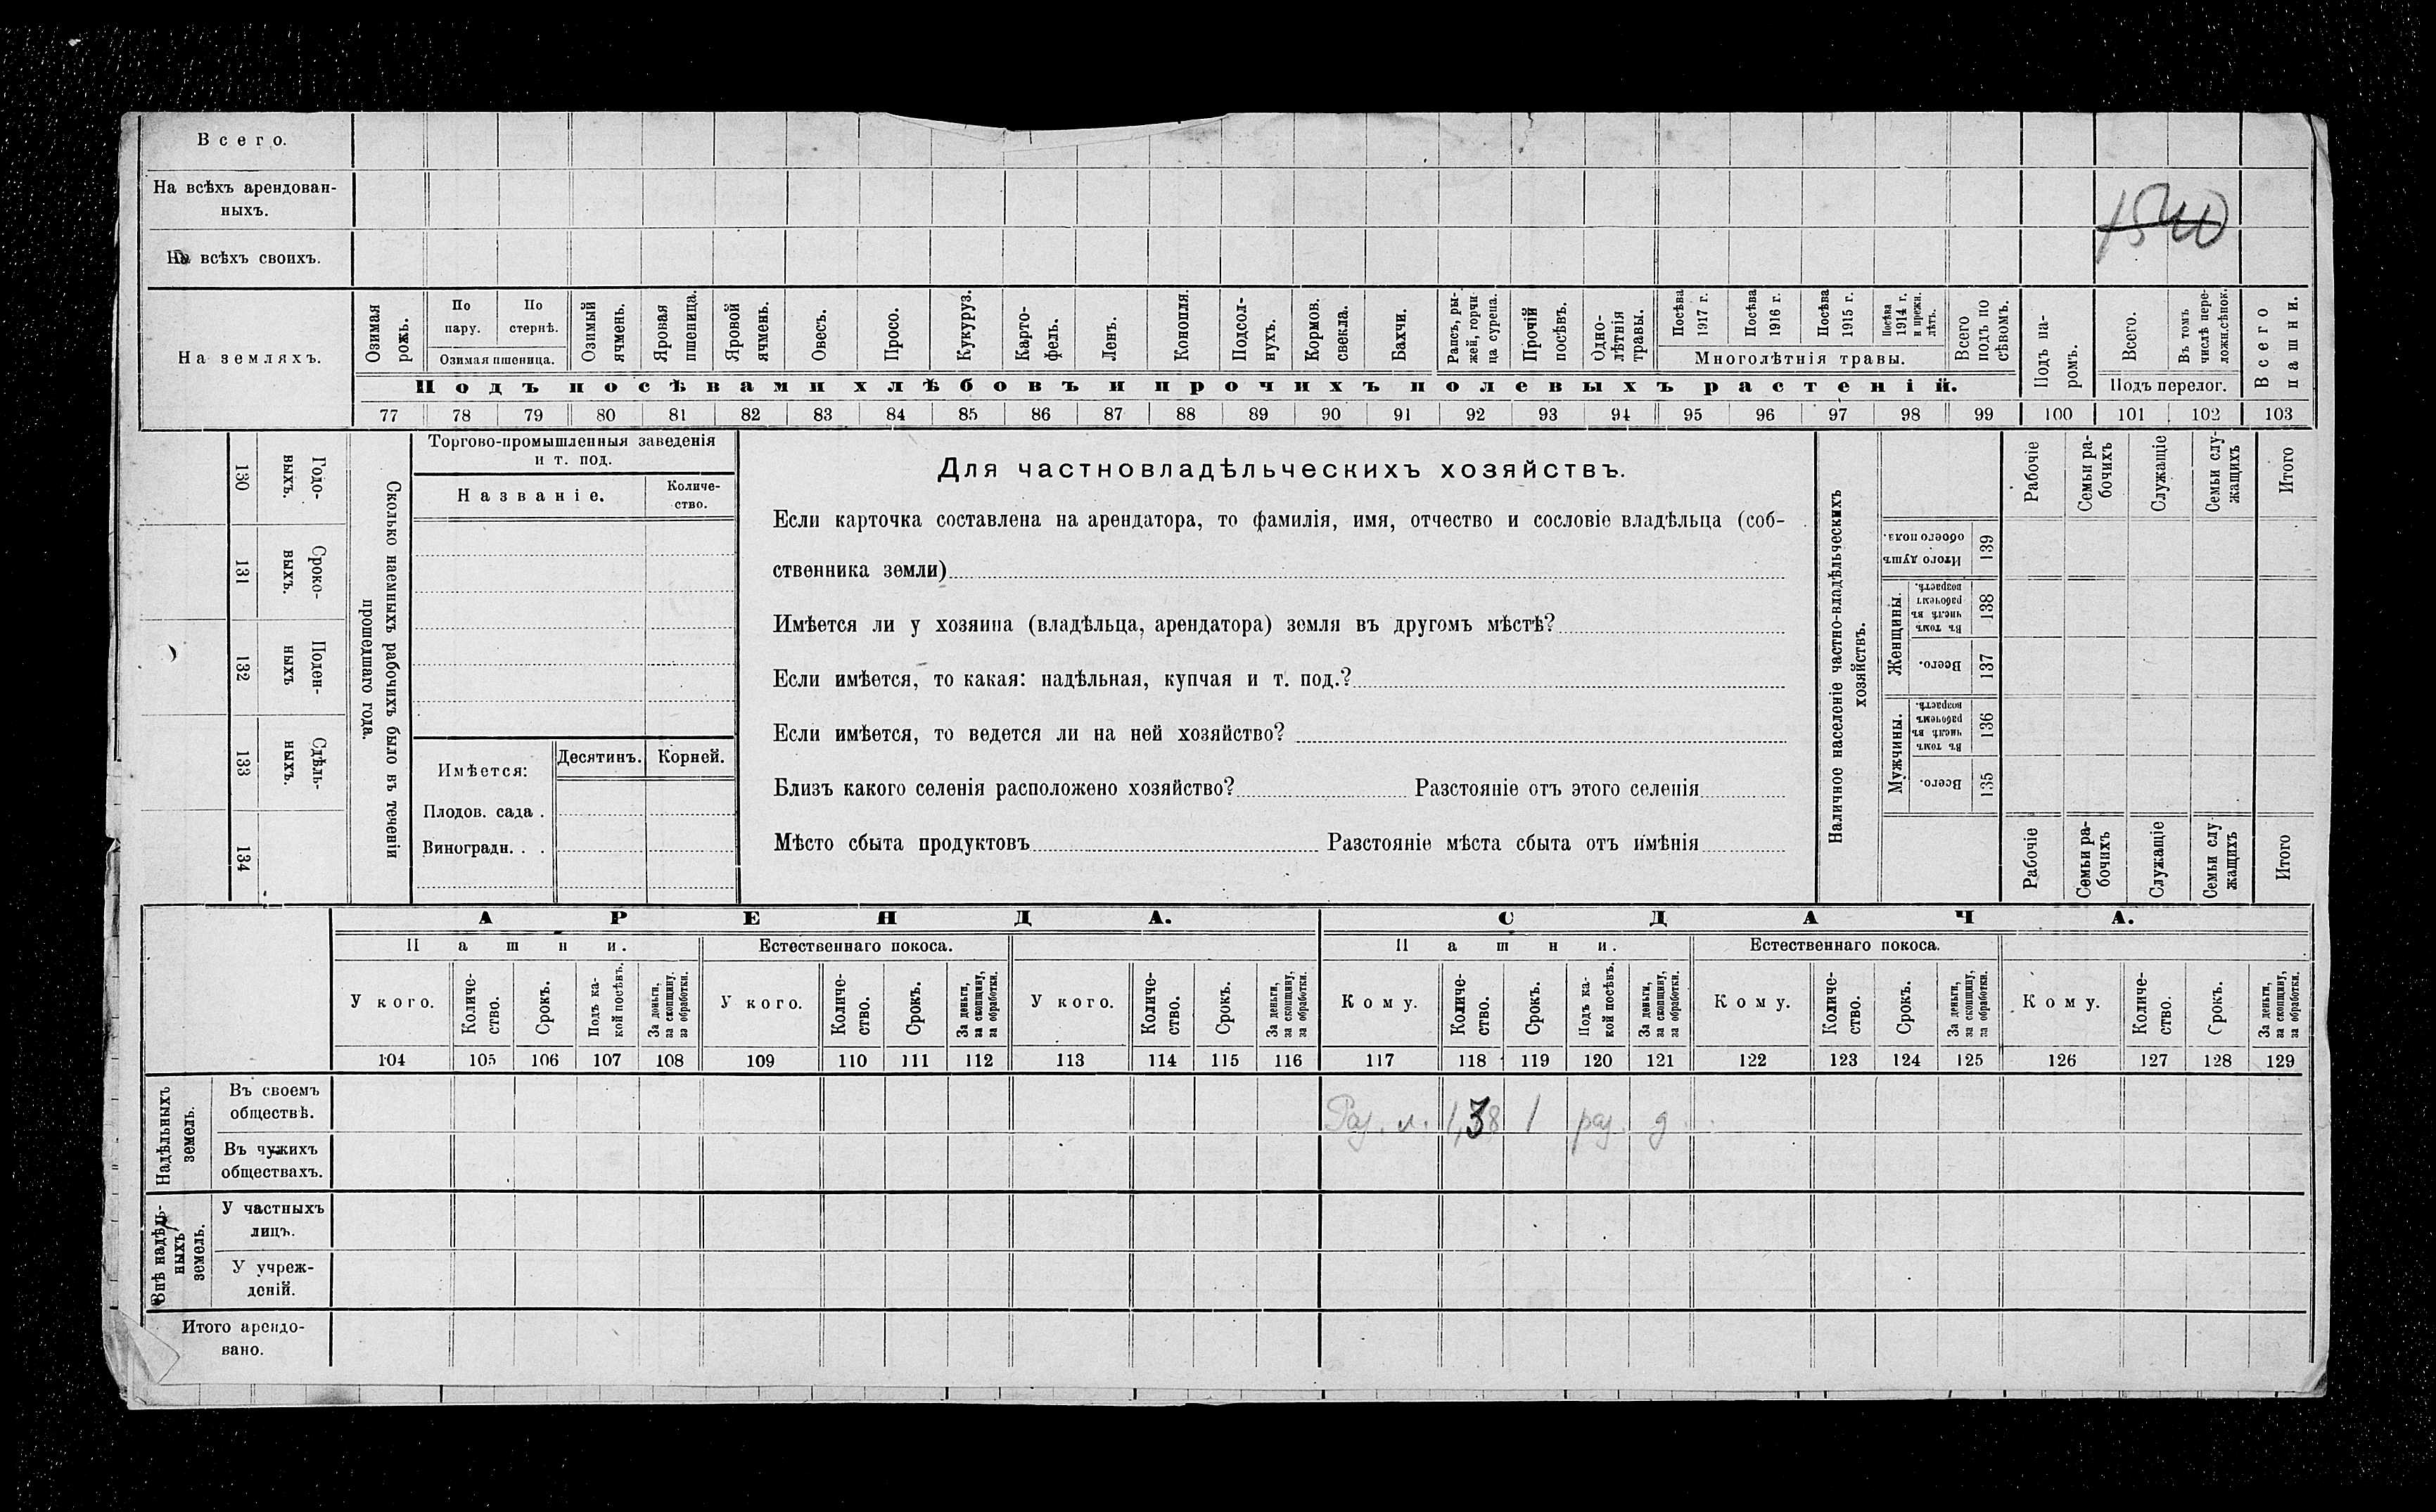 Всего.
На всѣхъ арендован-
ныхъ.
На всѣхъ своихъ.
1540
На земляхъ.
Озимая рожь.
По пару.
По стернѣ.
Озимая пшеница.
Озимый ячмень.
Яровая пшеница.
Яровой ячмень.
Овесъ.
Просо.
Кукуруз.
Карто-
фель.
Ленъ.
Конопля.
Подсол-
нухъ.
Кормов. свекла.
Бахчи.
Рапсъ, ры-
жей, горчи
ца сурепа.
Прочій посѣвъ.
Одно-
лѣтнія
травы.
Посѣва 1917 г.
Посѣва 1916 г.
Посѣва 1915 г.
Посѣва 1914 г. и прежн. лѣтъ.
Многолѣтнія травы.
Всего подъ по
сѣвомъ.
Подъ па-
ромъ.
Всего.
Въ томъ числѣ пере-
ложн.сѣнок.
Подъ перелог.
Всего пашни.
Подъ посѣвами хлѣбовъ и прочихъ полевыхъ растеній.
77 78 79 80 81 82 83 84 85 86 87 88 89 90 91 92 93 94 95 96 97 98 99 100 101 102 103
130 Годо-
выхъ.
131 Сроко-
выхъ.
132 Поден-
ныхъ
133 Сдѣль-
ныхъ.
134
Сколько наемныхъ рабочихъ было въ теченіи
прошедшаго года.
Торгово-промышленныя заведенія
и т. под.
Названіе.
Количе-
ство.
Имѣется:
Десятинъ.
Корней.
Плодов. сада .
Виноградн. . .
Для частновладѣльческихъ хозяйствъ.
Если карточка составлена на арендатора, то фамилія, имя, отчество и сословіе владѣльца (соб-
ственника земли)
Имѣется ли у хозяина (владѣльца, арендатора) земля въ другомъ мѣстѣ?
Если имѣется, то какая: надѣльная, купчая и т. под.?
Если имѣется, то ведется ли на ней хозяйство?
Близъ какого селенія расположено хозяйство? Разстояніе отъ этого селенія
Мѣсто сбыта продуктовъ Разстояніе мѣста сбыта отъ имѣнія
Наличное населеніе частно-владѣльческихъ
хозяйствъ.
Рабочіе
Семьи ра-
бочихъ
Служащіе
Семьи слу-
жащихъ
Итого
Итого душъ обоего пола. 139
Женщины.
Въ томъ числѣ въ рабочемъ возрастѣ. 138
Всего. 137
Мужчины.
Въ томъ числѣ въ рабочемъ возрастѣ. 136
Всего. 135
Рабочіе
Семьи ра-
бочихъ
Служащіе
Семьи слу
жащихъ
Итого
АРЕНДА.
СДАЧА.
Пашни.
Естественнаго покоса.
Пашни.
Естественнаго покоса.
У кого.
Количе-
ство.
Срокъ.
Подъ ка-
кой посѣвъ.
За деньги, за скопщину, за обработки.
У кого.
Количе-
ство.
Срокъ.
За деньги, за скопщину, за обработки.
У кого.
Количе-
ство.
Срокъ.
За деньги, за скопщину, за обработки.
Кому.
Количе-
ство.
Срокъ.
Подъ ка-
кой посѣвъ.
За деньги, за скопщину, за обработки.
Кому.
Количе-
ство.
Срокъ.
За деньги, за скопщину, за обработки.
Кому.
Количе-
ство.
Срокъ.
За деньги, за скопщину, за обработки.
104 105 106 107 108 109 110 111 112 113 114 115 116 117 118 119 120 121 122 123 124 125 126 127 128 129
Надѣльныхъ
земель.
Въ своемъ
обществѣ.
Раз. л. 1,38 1 раз. д
Въ чужихъ
обществахъ.
Внѣ надѣль-
ныхъ
земель.
У частныхъ
лицъ.
У учреж-
деній.
Итого арендо-
вано.